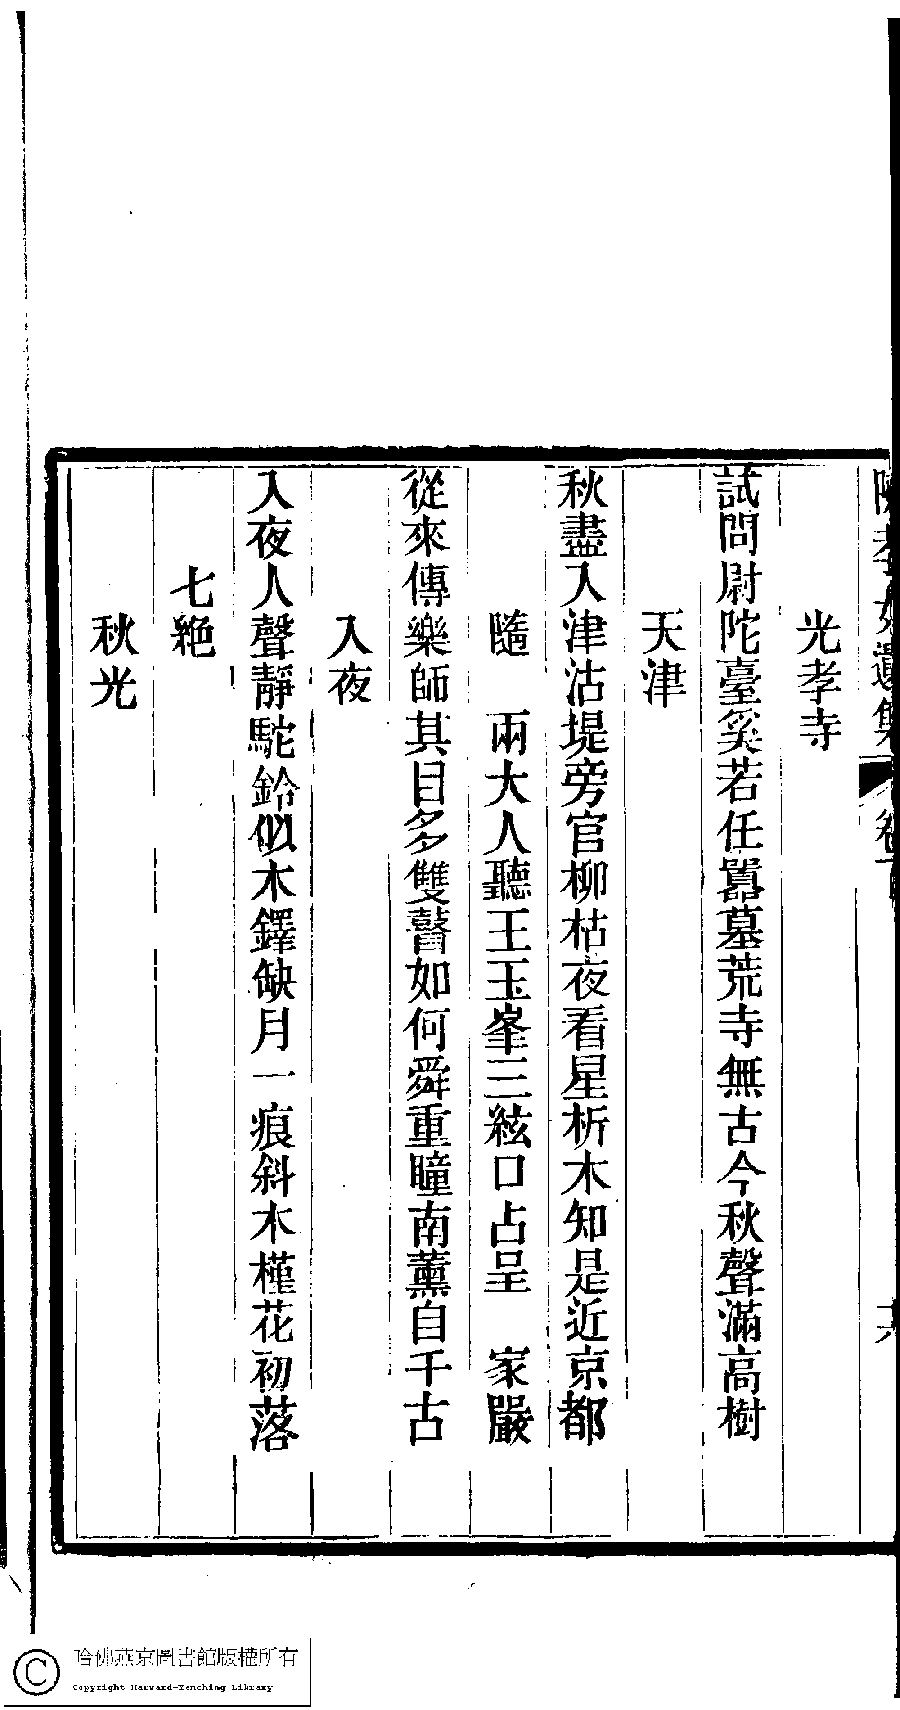 孝女遺集 卷
光孝寺
試問尉陀臺奚若任囂墓荒寺無古今秋聲滿高樹
天津
秋盡入津沽堤旁官柳枯夜看星析木知是近京都
隨 兩大人聽王玉峯三絃口占呈 家嚴
從來傳樂師其目多雙瞽如何舜重瞳南薰自千古
入夜
入夜人聲靜駝鈴似木鐸缺月一痕斜木槿花初落
七絕
秋光
哈佛燕京圖書館版權所有
Copyright Harvard-Yenching Library